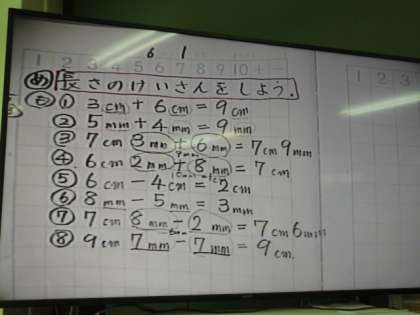 6 1
1 2 3 4 5 6 7 8 9 10 + -
1 2 3
め 長さのけいさんをしよう.
も ① 3cm + 6cm = 9cm
② 5mm + 4mm = 9mm
③ 7cm 3mm + 6mm = 7cm 9mm
④ 6cm 2mm + 8mm = 7cm
10mm=1cm
⑤ 6cm - 4cm = 2cm
⑥ 8mm - 5mm = 3mm
⑦ 7cm 8mm - 2mm = 7cm 6mm
⑧ 9cm 7mm - 7mm = 9cm.